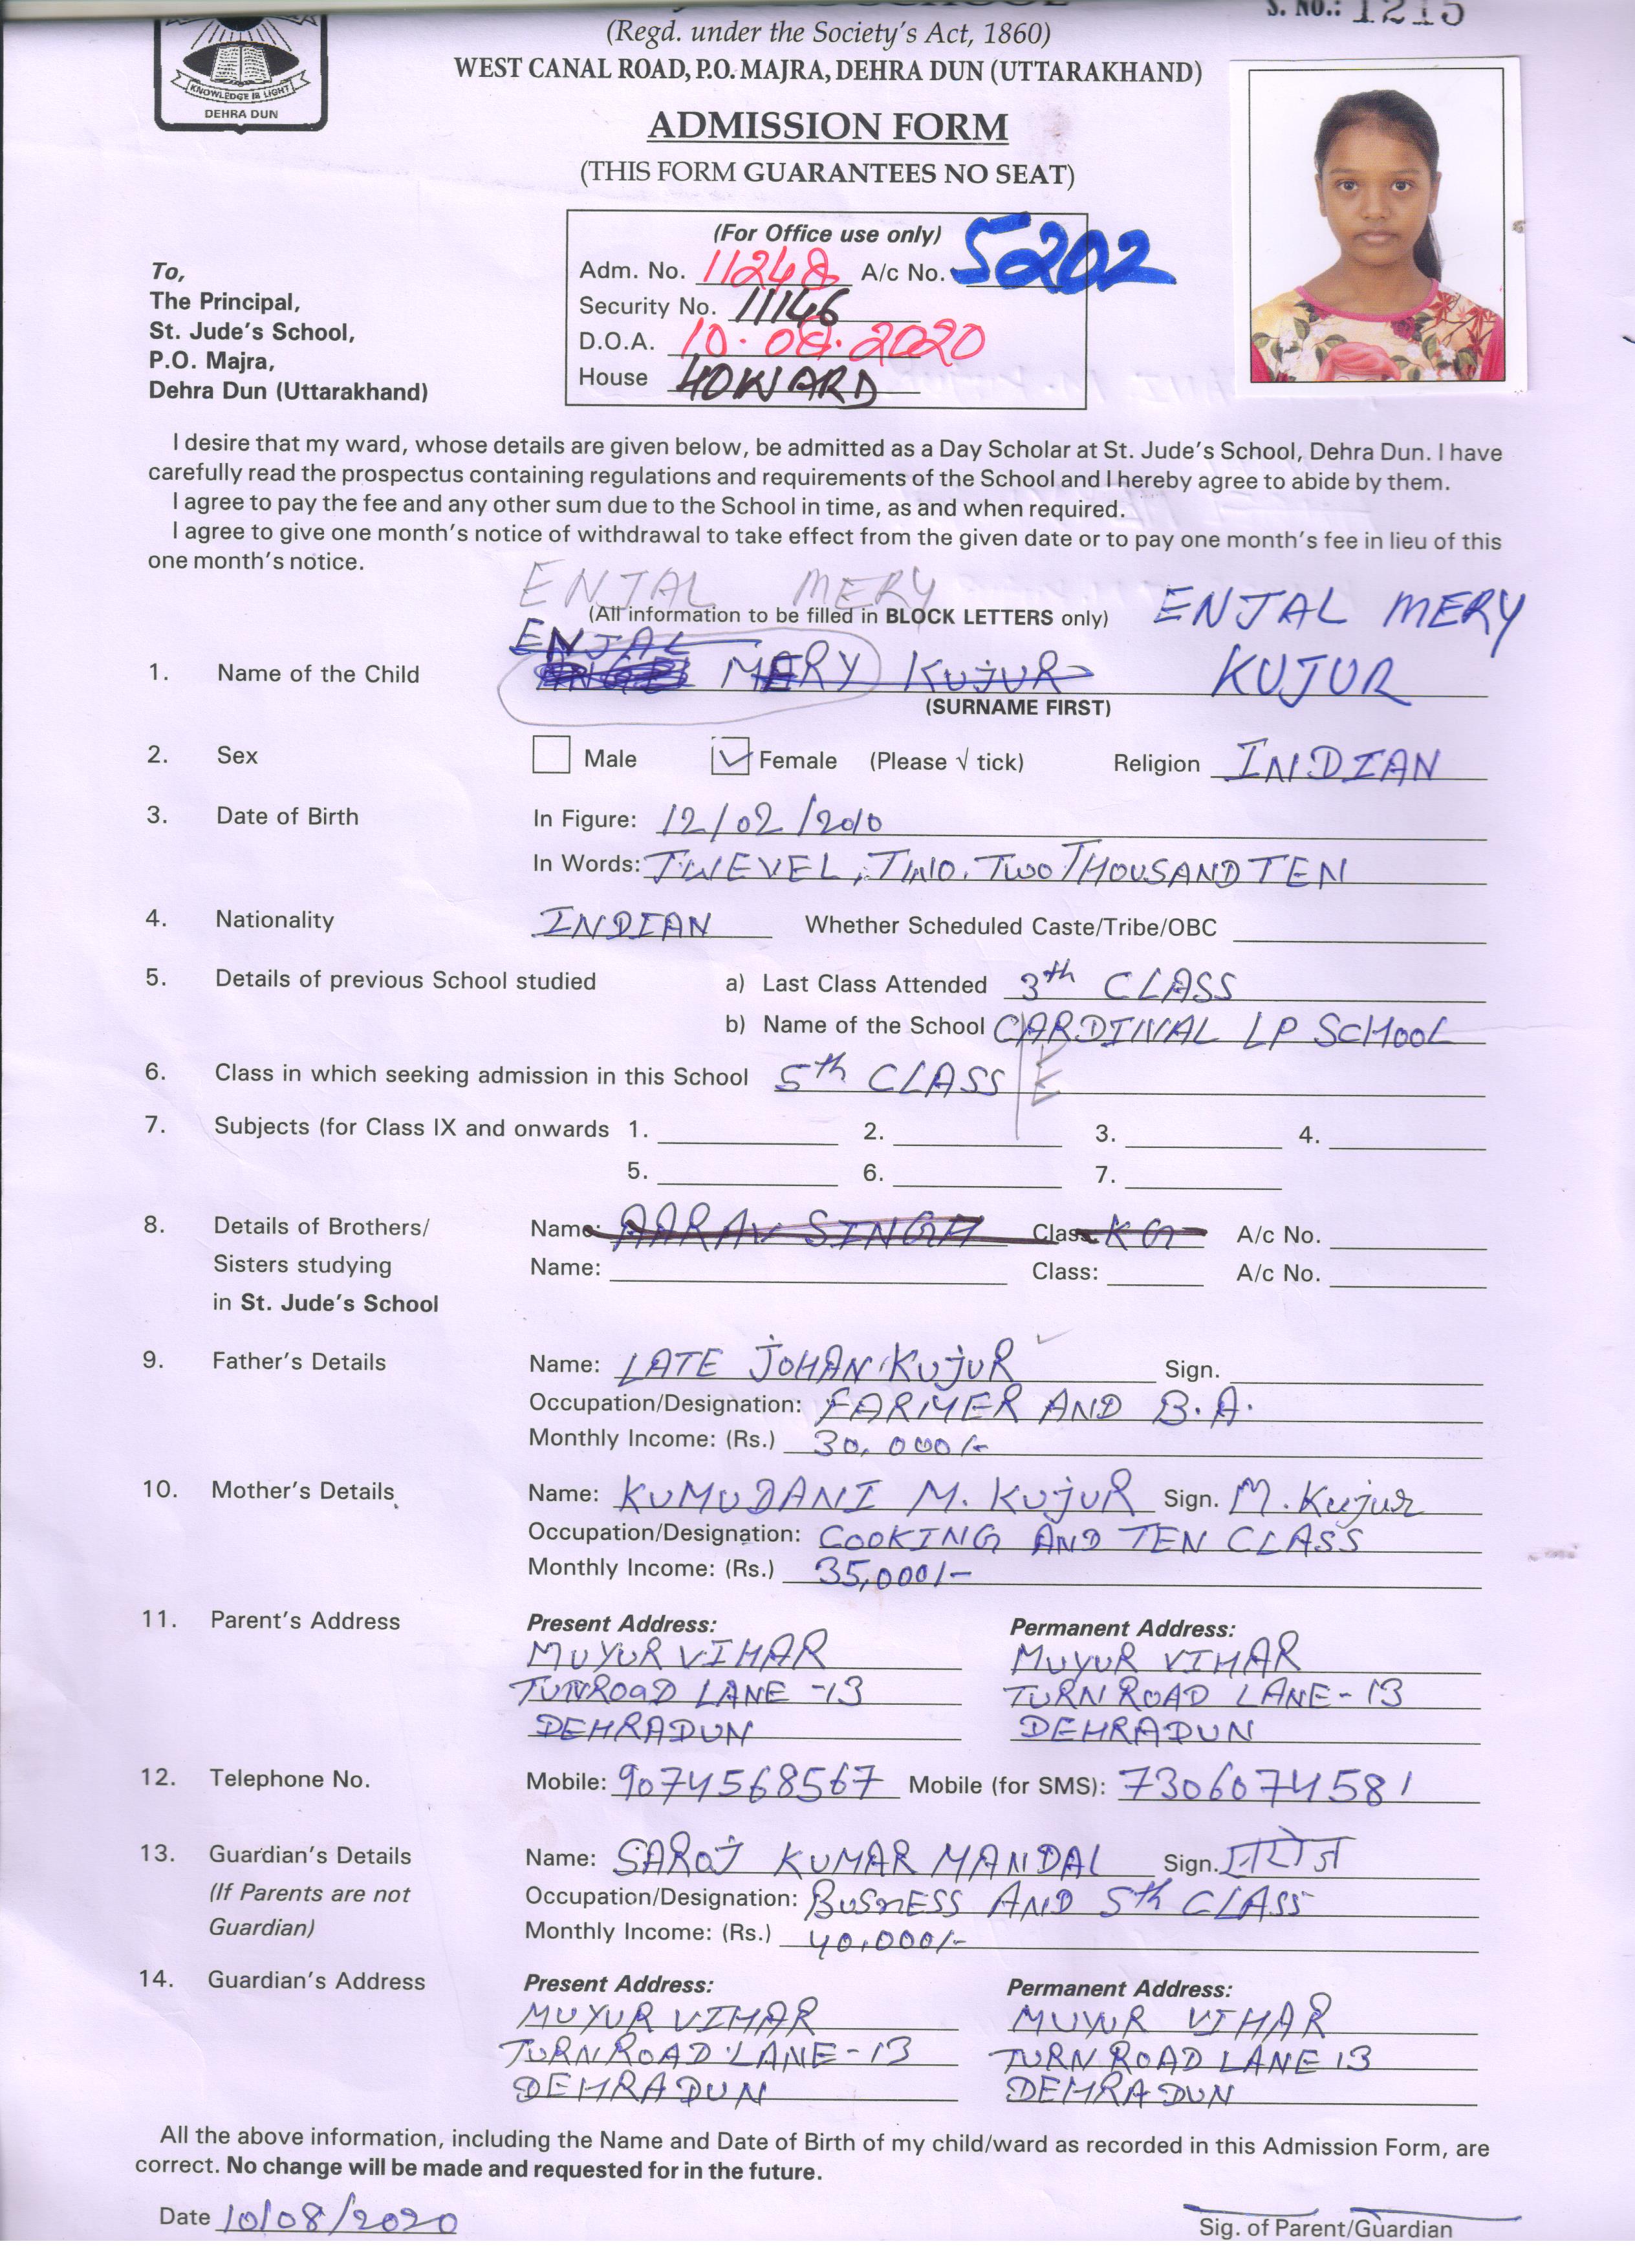 S. No.: 1215
(Regd. under the Society's Act, 1860)
WEST CANAL ROAD, P.O. MAJRA, DEHRA DUN (UTTARAKHAND)
KNOWLEDGE IS LIGHT
DEHRA DUN
ADMISSION FORM
(THIS FORM GUARANTEES NO SEAT)
(For Office use only)
Adm. No. 11248 A/c No. 5202
Security No. 11146
D.O.A. 10.08.2020
House HOWARD
To,
The Principal,
St. Jude's School,
P.O. Majra,
Dehra Dun (Uttarakhand)
I desire that my ward, whose details are given below, be admitted as a Day Scholar at St. Jude's School, Dehra Dun. I have
carefully read the prospectus containing regulations and requirements of the School and I hereby agree to abide by them.
I agree to pay the fee and any other sum due to the School in time, as and when required.
I agree to give one month's notice of withdrawal to take effect from the given date or to pay one month's fee in lieu of this
one month's notice.
ENJAL MERY
(All information to be filled in BLOCK LETTERS only) ENJAL MERY
ENJAL
1. Name of the Child MERY KUJUR KUJUR
(SURNAME FIRST)
2. Sex Male Female (Please √ tick) Religion INDIAN
3. Date of Birth In Figure: 12/02/2010
In Words: TWEVEL, TWO, TWO THOUSAND TEN
4. Nationality INDIAN Whether Scheduled Caste/Tribe/OBC
5. Details of previous School studied a) Last Class Attended 3th CLASS
b) Name of the School CARDINAL LP SCHOOL
6. Class in which seeking admission in this School 5th CLASS E
7. Subjects (for Class IX and onwards 1. 2. 3. 4.
5. 6. 7.
8. Details of Brothers/ Name: AARAV SINGH Class: KG A/c No.
Sisters studying Name: Class: A/c No.
in St. Jude's School
9. Father's Details Name: LATE JOHAN KUJUR Sign.
Occupation/Designation: FARMER AND B.A.
Monthly Income: (Rs.) 30,000/-
10. Mother's Details Name: KUMUDANI M. KUJUR Sign. M. Kujur
Occupation/Designation: COOKING AND TEN CLASS
Monthly Income: (Rs.) 35,000/-
11. Parent's Address Present Address: Permanent Address:
MUYUR VIHAR MUYUR VIHAR
TUNROAD LANE -13 TURN ROAD LANE-13
DEHRADUN DEHRADUN
12. Telephone No. Mobile: 9074568567 Mobile (for SMS): 7306074581
13. Guardian's Details Name: SAROJ KUMAR MANDAL Sign. सरोज
(If Parents are not Occupation/Designation: BUSNESS AND 5th CLASS
Guardian) Monthly Income: (Rs.) 40,000/-
14. Guardian's Address Present Address: Permanent Address:
MUYUR VIHAR MUYUR VIHAR
TURN ROAD LANE-13 TURN ROAD LANE 13
DEHRADUN DEHRADUN
All the above information, including the Name and Date of Birth of my child/ward as recorded in this Admission Form, are
correct. No change will be made and requested for in the future.
Date 10/08/2020
Sig. of Parent/Guardian